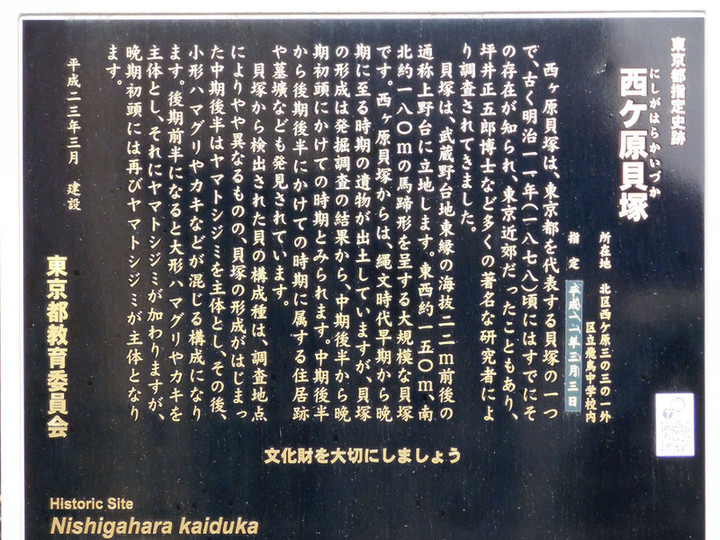 東京都指定史跡
にしがはらかいづか
西ケ原貝塚
所在地 北区西ケ原三の三の一外
区立飛鳥中学校内
指定 平成一一年三月三日
西ヶ原貝塚は、東京都を代表する貝塚の一つ
で、古く明治一一年(一八七八)頃にはすでにそ
の存在が知られ、東京近郊だったこともあり、
坪井正五郎博士など多くの著名な研究者によ
り調査されてきました。
貝塚は、武蔵野台地東縁の海抜二二m前後の
通称上野台に立地します。東西約一五〇m、南
北約一八〇mの馬蹄形を呈する大規模な貝塚
です。西ヶ原貝塚からは、縄文時代早期から晩
期に至る時期の遺物が出土していますが、貝塚
の形成は発掘調査の結果から、中期後半から晩
期初頭にかけての時期とみられます。中期後半
から後期後半にかけての時期に属する住居跡
や墓壙なども発見されています。
貝塚から検出された貝の構成種は、調査地点
によりやや異なるものの、貝塚の形成がはじまっ
た中期後半はヤマトシジミを主体とし、その後、
小形ハマグリやカキなどが混じる構成になり
ます。後期前半になると大形ハマグリやカキを
主体とし、それにヤマトシジミが加わりますが、
晩期初頭には再びヤマトシジミが主体となり
ます。
平成二三年三月 建設
東京都教育委員会
文化財を大切にしましょう
Historic Site
Nishigahara kaiduka